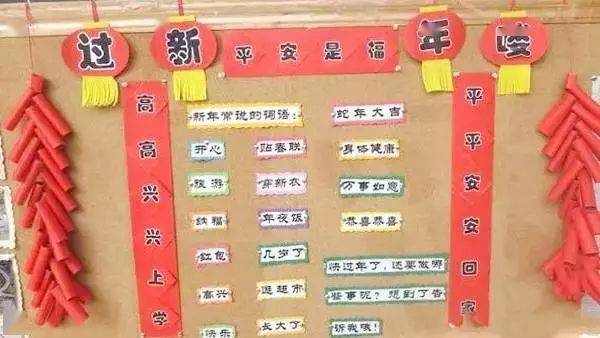 过新年喽
平安是福
高高兴兴上学
平平安安回家
新年常说的词语：
蛇年大吉
开心
贴春联
身体健康
旅游
穿新衣
万事如意
纳福
年夜饭
恭喜恭喜
红包
几岁了
高兴
逛超市
快乐
长大了
快过年了，还要做哪
些事呢？想到了告
诉我哦！